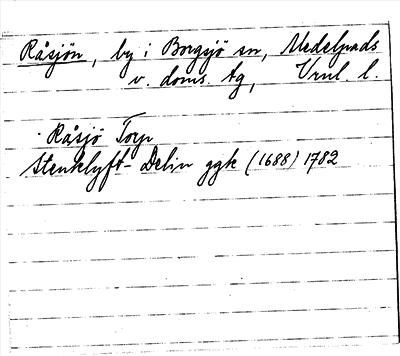 Råsjön, by i Borgsjö sn, Medelpads
v. doms. tg, Vrnl l.
Råsjö Torp
Stenklyft- Delin ggk (1688) 1782